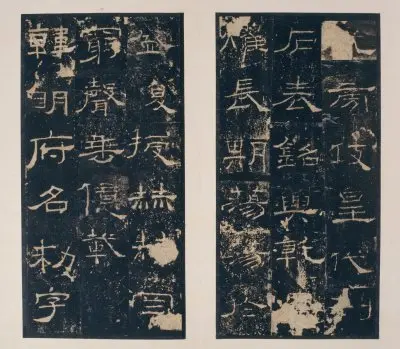 旁伎皇代刊
石表銘與乾
燿長期蕩蕩於
盛復授赫赫罔
窮聲垂億載
韓明府名勑字